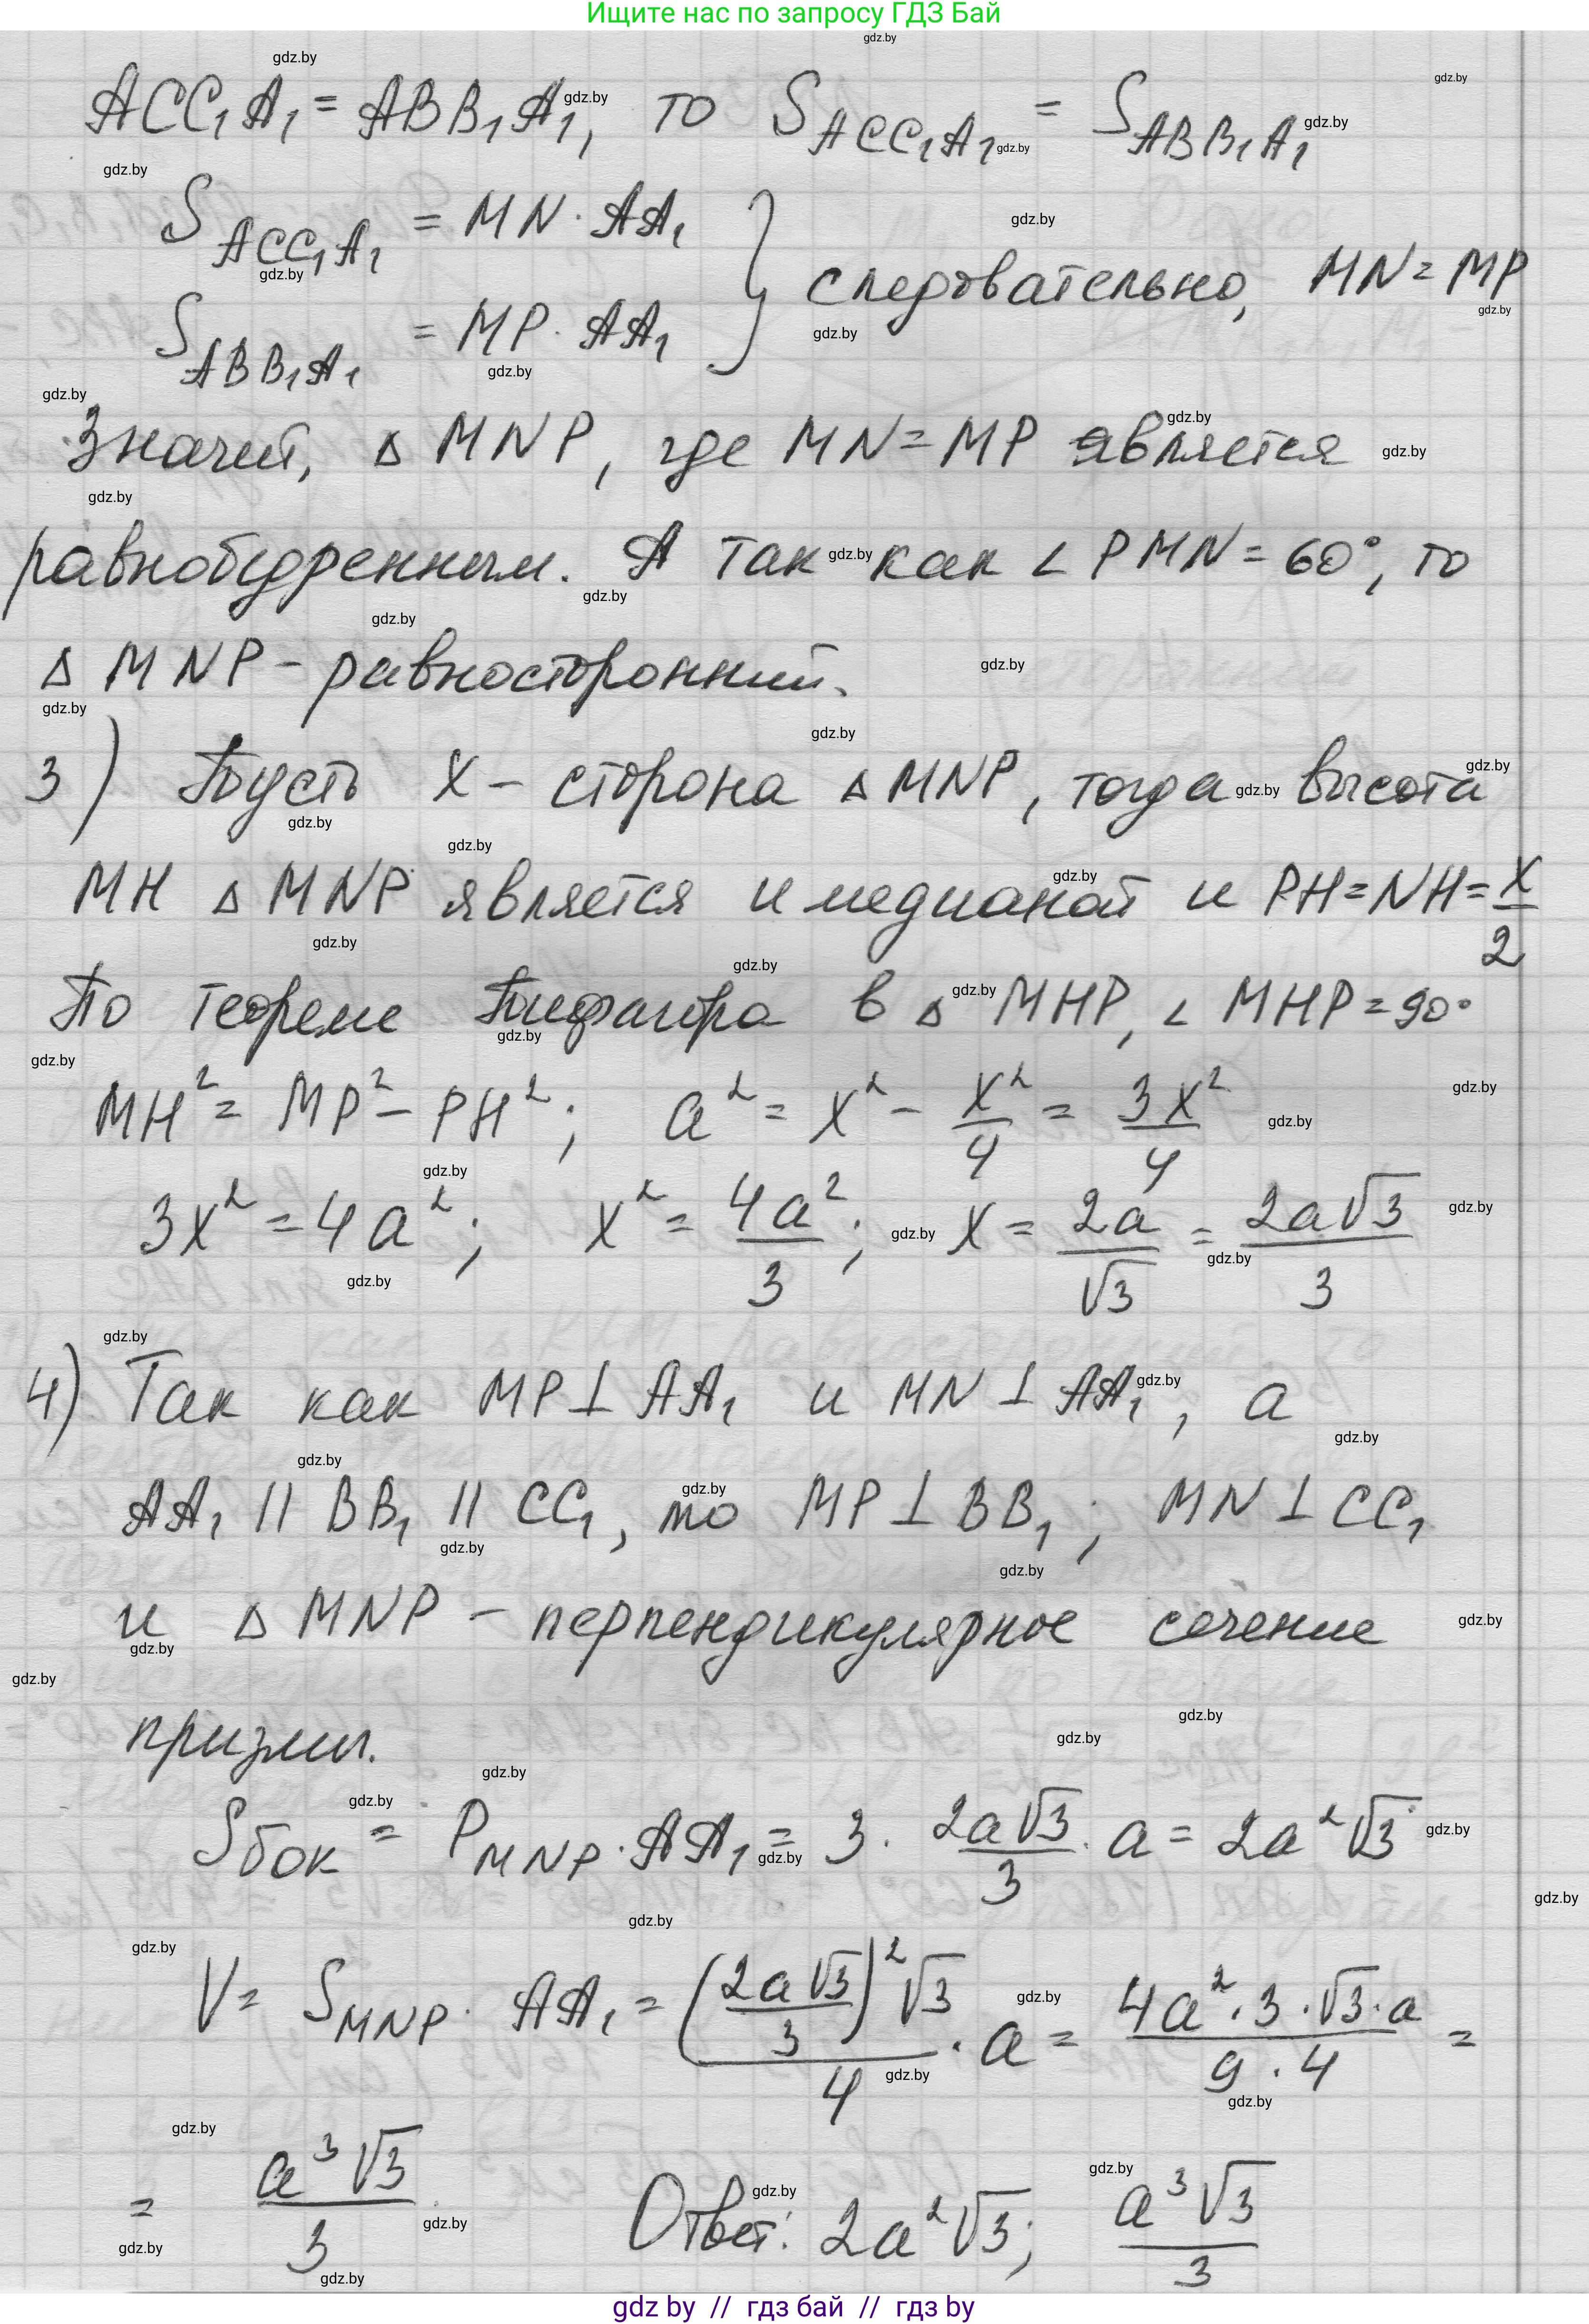 Ищите нас по запросу ГДЗ Бай
ACC₁A₁ = ABB₁A₁, то S_{ACC₁A₁} = S_{ABB₁A₁}
S_{ACC₁A₁} = MN · AA₁
S_{ABB₁A₁} = MP · AA₁ } следовательно, MN = MP
Значит, Δ MNP, где MN = MP является
равнобедренным. А так как ∠ PMN = 60°, то
Δ MNP - равносторонний.
3) Пусть x - сторона Δ MNP, тогда высота
MH Δ MNP является и медианой и PH = NH = x/2
По теореме Пифагора в Δ MHP, ∠ MHP = 90°
MH² = MP² - PH²; a² = x² - x²/4 = 3x²/4
3x² = 4a²; x² = 4a²/3; x = 2a/√3 = 2a√3/3
4) Так как MP ⊥ AA₁ и MN ⊥ AA₁, а
AA₁ || BB₁ || CC₁, то MP ⊥ BB₁; MN ⊥ CC₁
и Δ MNP - перпендикулярное сечение
призмы.
S_{бок} = P_{MNP} · AA₁ = 3 · 2a√3/3 · a = 2a²√3
V = S_{MNP} · AA₁ = (2a√3/3)²√3/4 · a = 4a² · 3 · √3 · a/9 · 4 =
= a³√3/3 Ответ: 2a²√3; a³√3/3
gdz by // гдз бай // гдз by